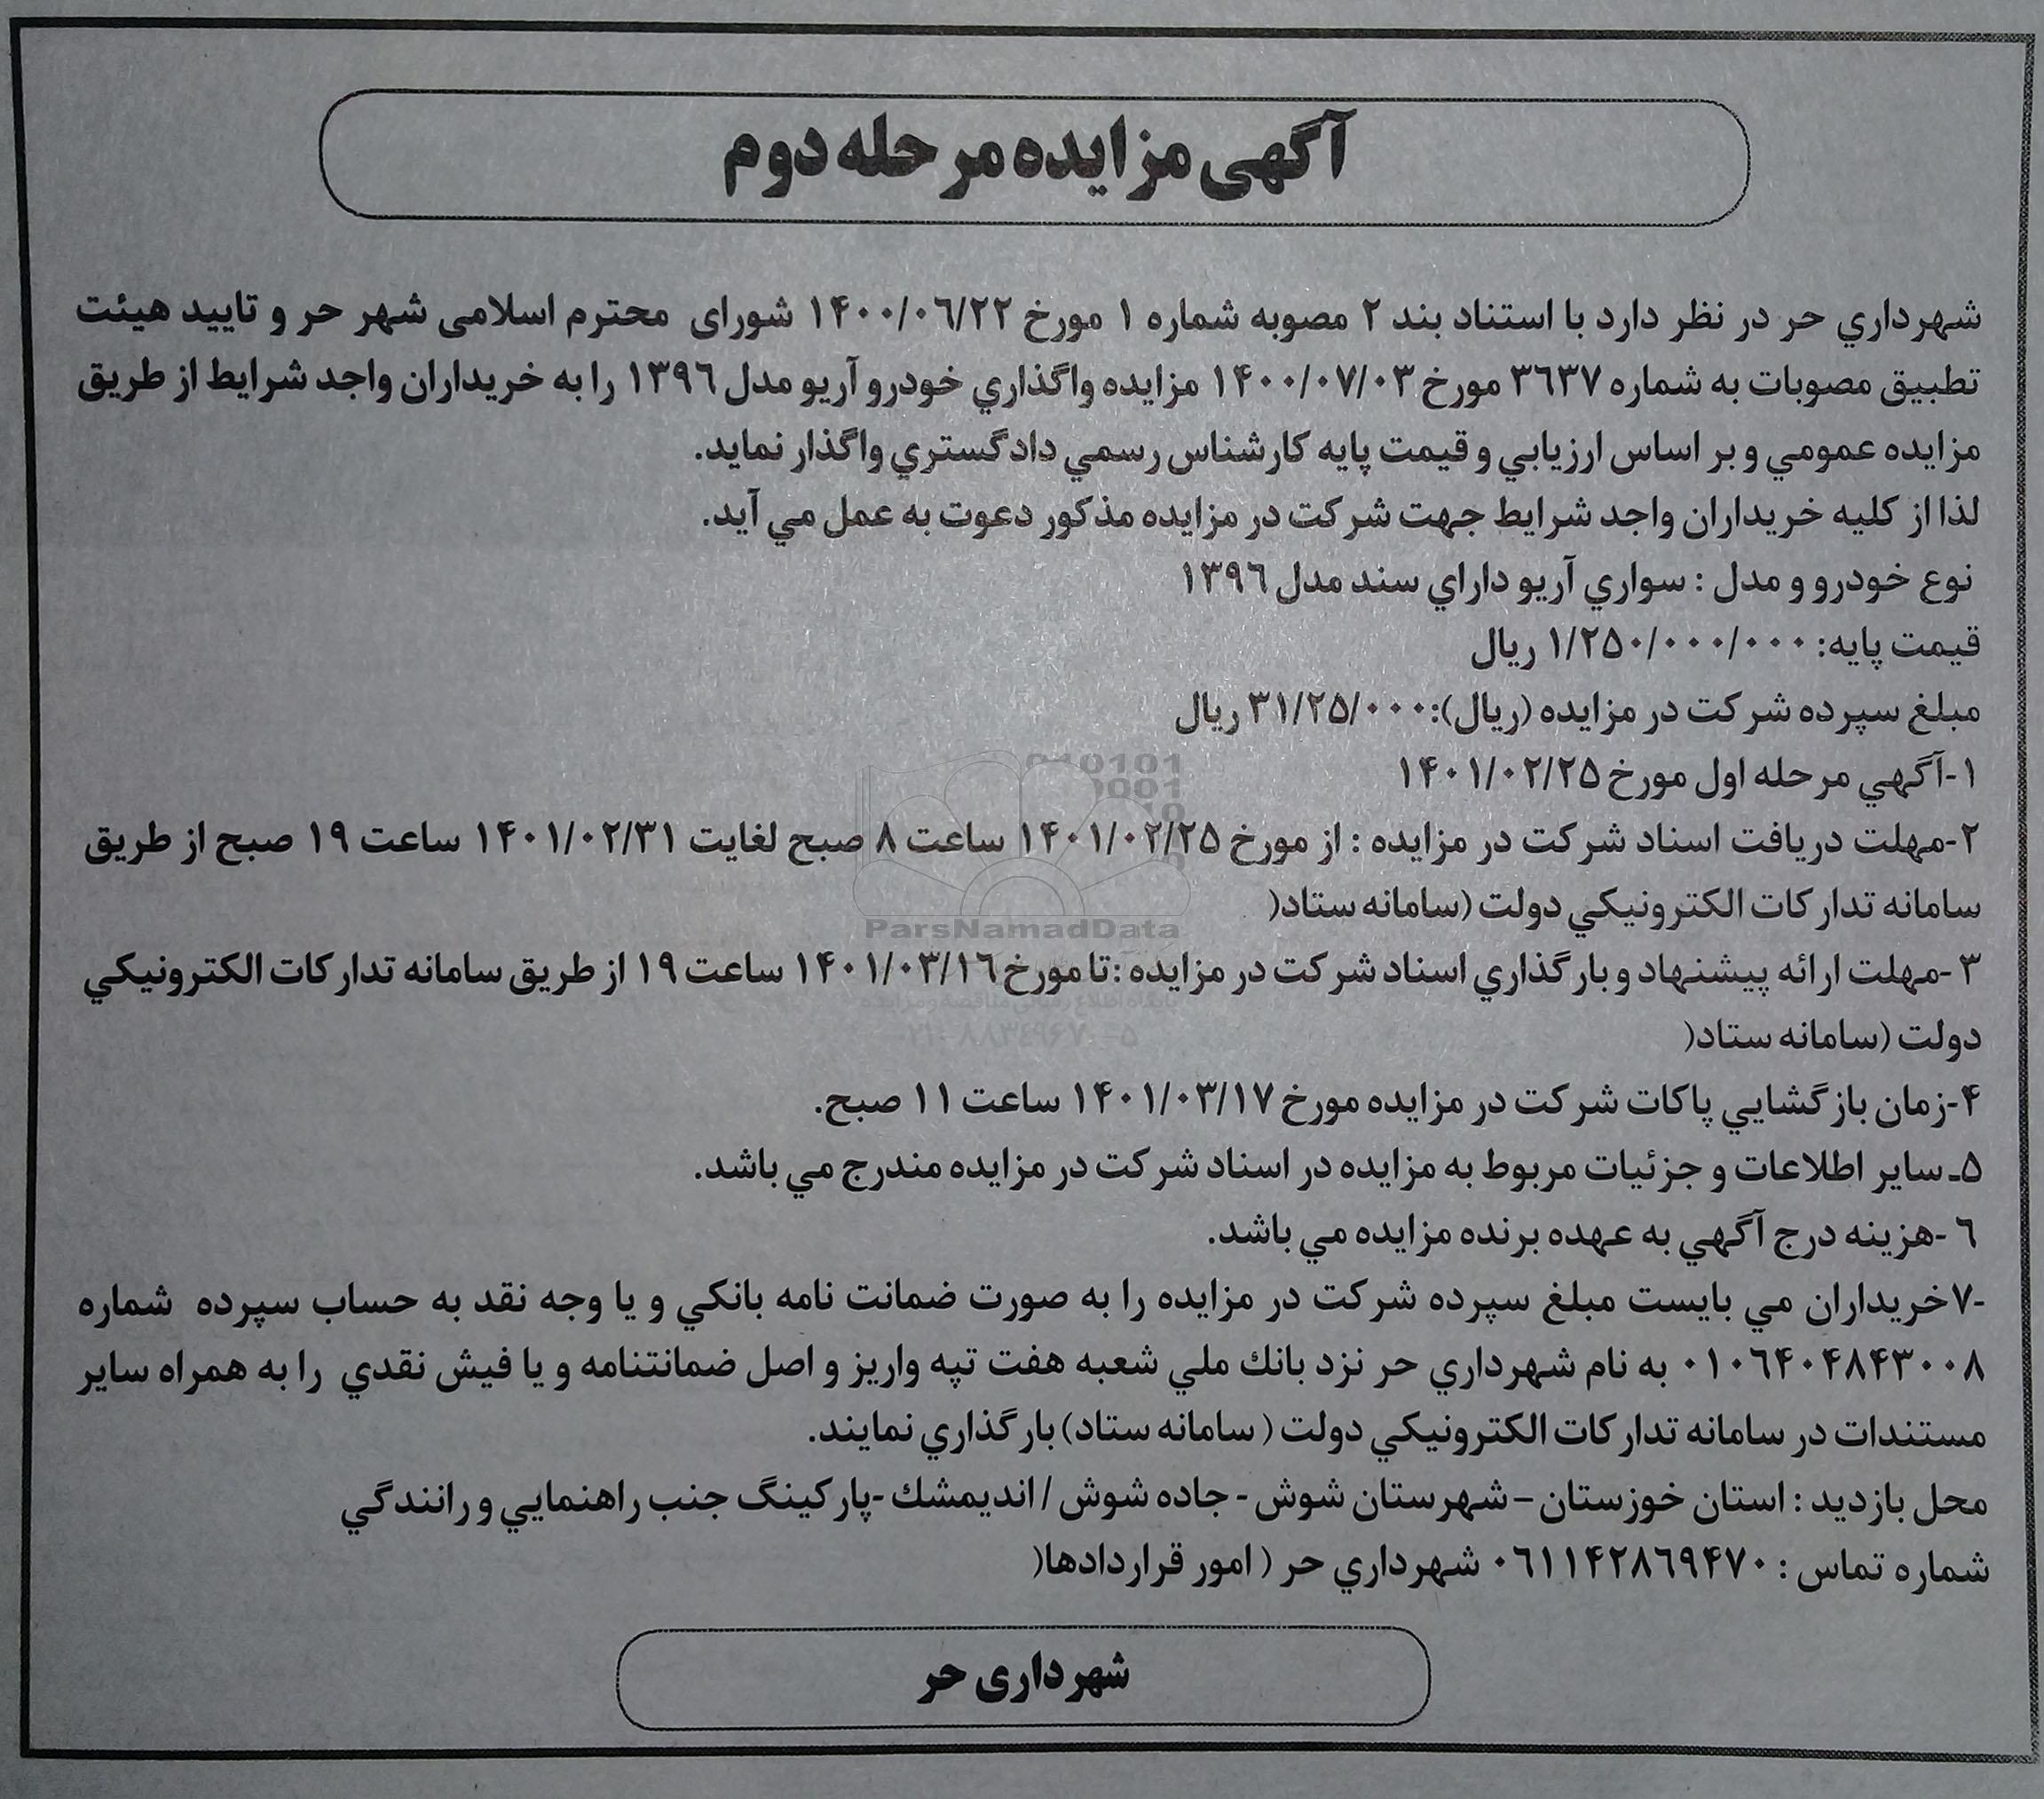 آگهی مزایده مرحله دوم
شهرداري حر در نظر دارد با استناد بند ۲ مصوبه شماره ۱ مورخ ۱۴۰۰/۰۶/۲۲ شورای محترم اسلامی شهر حر و تایید هیئت
تطبیق مصوبات به شماره ۳۶۳۷ مورخ ۱۴۰۰/۰۷/۰۳ مزایده واگذاري خودرو آریو مدل ۱۳۹۶ را به خریداران واجد شرایط از طریق
مزایده عمومي و بر اساس ارزیابي و قیمت پایه کارشناس رسمي دادگستري واگذار نماید.
لذا از کلیه خریداران واجد شرایط جهت شرکت در مزایده مذکور دعوت به عمل مي آید.
نوع خودرو و مدل : سواري آریو داراي سند مدل ۱۳۹۶
قیمت پایه: ۱/۲۵۰/۰۰۰/۰۰۰ ریال
مبلغ سپرده شرکت در مزایده (ریال):۳۱/۲۵/۰۰۰ ریال
۱-آگهي مرحله اول مورخ ۱۴۰۱/۰۲/۲۵
۲-مهلت دریافت اسناد شرکت در مزایده : از مورخ ۱۴۰۱/۰۲/۲۵ ساعت ۸ صبح لغایت ۱۴۰۱/۰۲/۳۱ ساعت ۱۹ صبح از طریق
سامانه تدارکات الکترونیکي دولت (سامانه ستاد(
۳-مهلت ارائه پیشنهاد و بارگذاري اسناد شرکت در مزایده :تا مورخ ۱۴۰۱/۰۳/۱۶ ساعت ۱۹ از طریق سامانه تدارکات الکترونیکي
دولت (سامانه ستاد(
۴-زمان بازگشایي پاکات شرکت در مزایده مورخ ۱۴۰۱/۰۳/۱۷ ساعت ۱۱ صبح.
۵ـ سایر اطلاعات و جزئیات مربوط به مزایده در اسناد شرکت در مزایده مندرج مي باشد.
۶-هزینه درج آگهي به عهده برنده مزایده مي باشد.
-۷خریداران مي بایست مبلغ سپرده شرکت در مزایده را به صورت ضمانت نامه بانکي و یا وجه نقد به حساب سپرده شماره
۰۱۰۶۴۰۴۸۴۳۰۰۸ به نام شهرداري حر نزد بانك ملي شعبه هفت تپه واریز و اصل ضمانتنامه و یا فیش نقدي را به همراه سایر
مستندات در سامانه تدارکات الکترونیکي دولت ( سامانه ستاد)بارگذاري نمایند.
محل بازدید : استان خوزستان – شهرستان شوش - جاده شوش / اندیمشك -پارکینگ جنب راهنمایي و رانندگي
شماره تماس : ۰۶۱۱۴۲۸۶۹۴۷۰ شهرداري حر ( امور قراردادها(
شهرداری حر
ParsNamadData